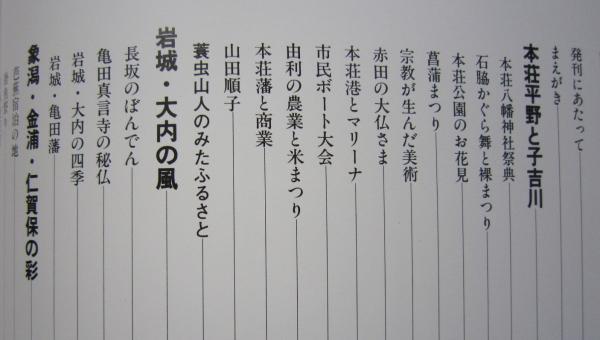 発刊にあたって
まえがき
本荘平野と子吉川
本荘八幡神社祭典
石脇かぐら舞と裸まつり
本荘公園のお花見
菖蒲まつり
宗教が生んだ美術
赤田の大仏さま
本荘港とマリーナ
市民ボート大会
由利の農業と米まつり
本荘藩と商業
山田順子
蓑虫山人のみたふるさと
岩城・大内の風
長坂のぼんでん
亀田真言寺の秘仏
岩城・大内の四季
岩城・亀田藩
象潟・金浦・仁賀保の彩
芭蕉宿泊の地